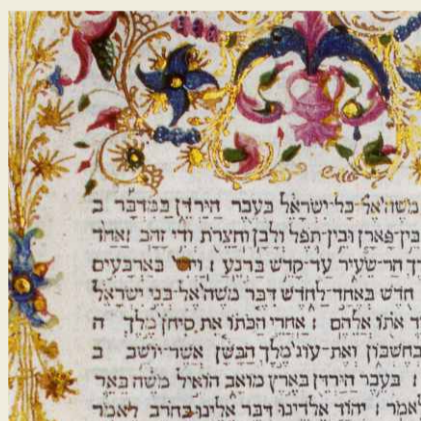 משה אל כל ישראל בעבר הירדן במדבר ב
בין פארן ובין תפל ולבן וחצרת ודי זהב אחד
רך הר שעיר עד קדש ברנע : ויהי בארבעים
חדש באחד לחדש דבר משה אל בני ישראל
אתו אלהם : אחרי הכתו את סיחן מלך ה
בחשבון ואת עוג מלך הבשן אשר יושב ב
: בעבר הירדן בארץ מואב הואיל משה באר
לאמר : יהוה אלהינו דבר אלינו בחרב לאמר